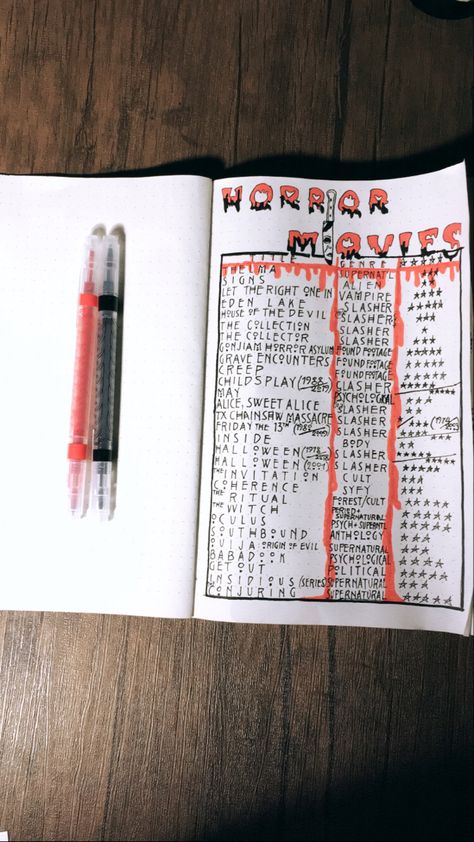 HORROR
MOVIES
TITLE GENRE ☆☆☆☆☆
THELMA SUPERNAT'L
SIGNS ALIEN
LET THE RIGHT ONE IN VAMPIRE
EDEN LAKE SLASHER
HOUSE OF THE DEVIL SLASHER
THE COLLECTION SLASHER
THE COLLECTOR SLASHER
GONJIAM HORROR ASYLUM FOUND FOOTAGE
GRAVE ENCOUNTERS FOUND FOOTAGE
CREEP FOUND FOOTAGE
CHILDS PLAY (1988/2019) SLASHER
MAY PSYCHOLOGICAL
ALICE, SWEET ALICE SLASHER
TX CHAINSAW MASSACRE SLASHER
FRIDAY THE 13TH SLASHER
INSIDE BODY
HALLOWEEN SLASHER
HALLOWEEN SLASHER
THE INVITATION CULT
COHERENCE SYFY
THE RITUAL FOREST/CULT
THE WITCH PERIOD + SUPERNATURAL
OCULUS PSYCH + SUPERNTL
SOUTHBOUND ANTHOLOGY
OUIJA: ORIGIN OF EVIL SUPERNATURAL
BABADOOK PSYCHOLOGICAL
GET OUT POLITICAL
INSIDIOUS (SERIES) SUPERNATURAL
CONJURING SUPERNATURAL